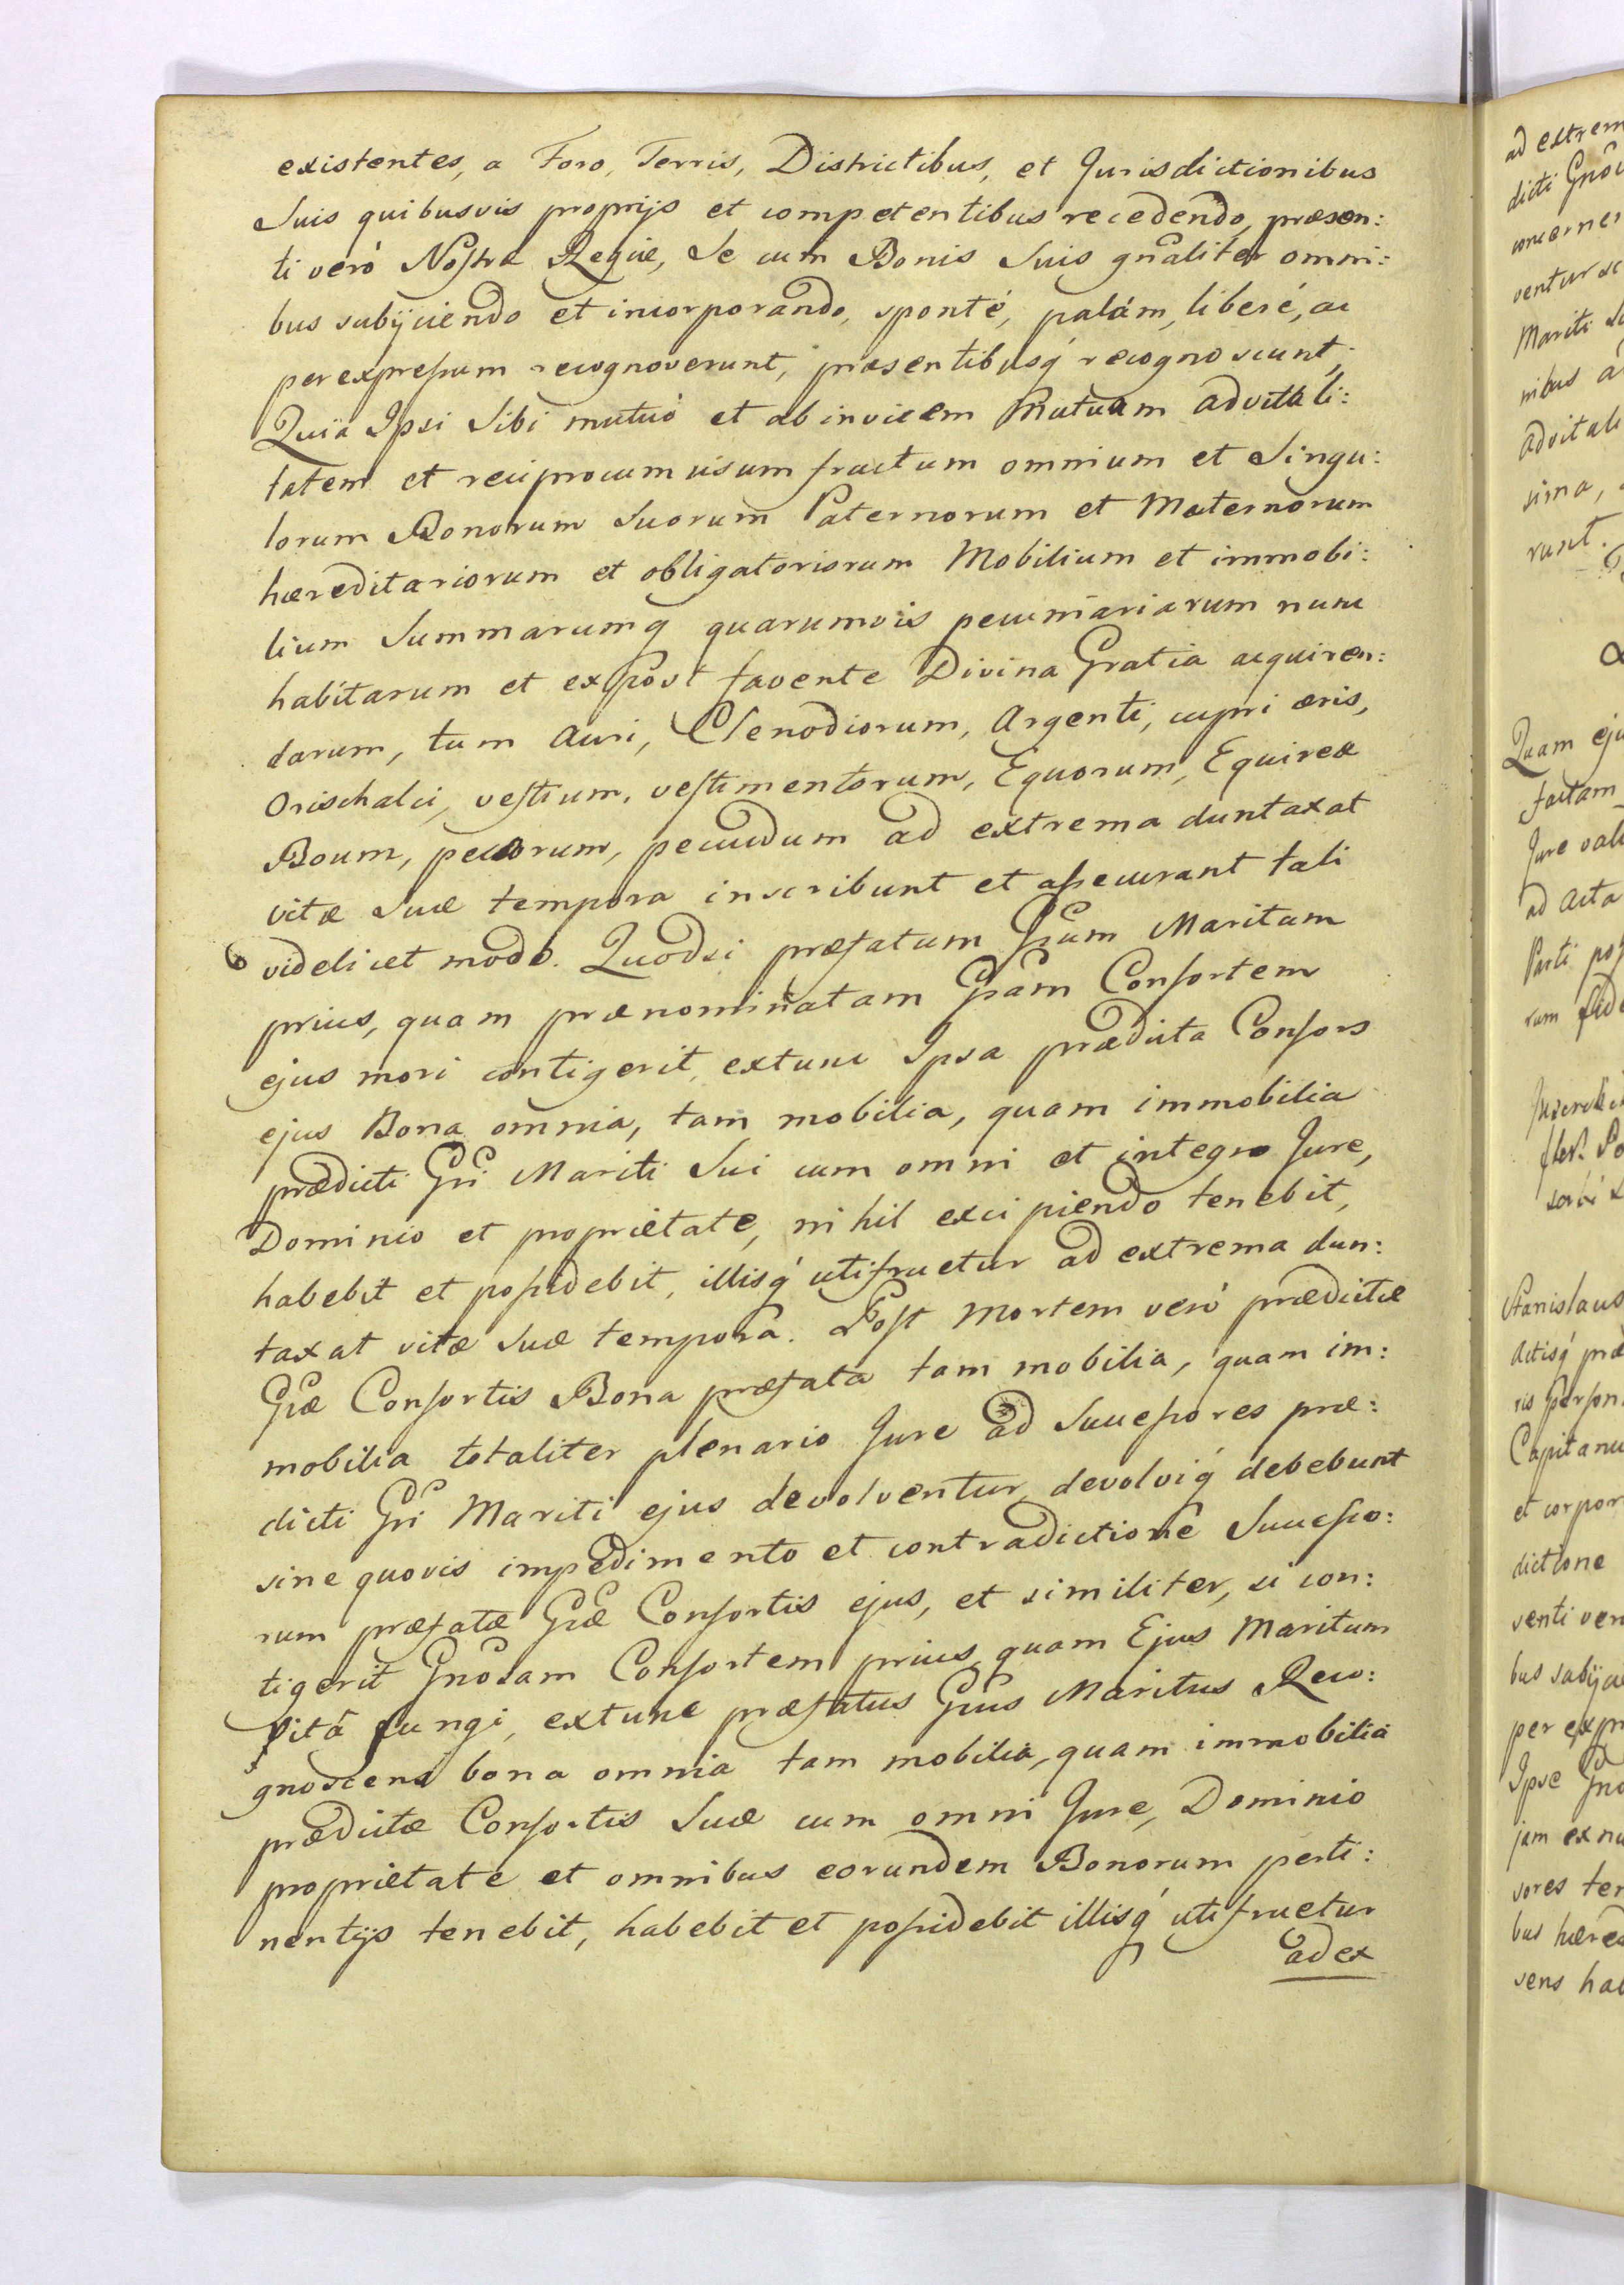 existentes, a Foro, Terris, Districtibus, et Jurisdictionibus
Suis quibusvis proprijs et competentibus recedendo, præsen:
ti verò Nostræ Regiæ, Se cum Bonis Suis gnãliter omni:
bus subijciendo et incorporando, sponté, palám, liberé, ac
per expressum recognoverunt, præsentibusq́ recognoscunt;
Quia Ipsi Sibi mutuó et ab invicem Mutuam advitali:
tatem et reciprocum usumfructum omnium et Singu:
lorum Bonorum Suorum Paternorum et Maternorum
hæreditariorum et obligatoriorum Mobilium et immobi:
lium Summarumq quarumvis pecuniariarum nunc
habitarum et expost favente Divina Gratia acquiren:
darum, tum Auri, Clenodiorum, Argenti, cupri æris,
Orischalci, vestium, vestimentorum, Equorum, Equireæ
Boum, pecorum, pecudum ad extrema duntaxat
vitæ Suæ tempora inscribunt et assecurant tali
videlicet modo. Quodsi præfatum Gsũm Maritum
prius, quam prænominatam Gsãm Consortem
ejus mori contigerit, extunc Ipsa prædicta Consors
ejus Bona omnia, tam mobilia, quam immobilia
prædicti Gsi Mariti Sui cum omni et integro Jure,
Dominio et proprietate, nihil excipiendo tenebit,
habebit et possidebit, illisq́ utifruetur ad extrema dun:
taxat vitæ Suæ tempora. Post Mortem veró prædictæ
Gsæ Consortis Bona præfata tam mobilia, quam im:
mobilia totaliter plenario Jure ad Successores præ:
dicti Gsi Mariti ejus devolventur, devolviq́ debebunt
sine quovis impedimento et contradictione Successo:
rum præfatæ Gsæ Consortis ejus, et similiter, si con:
tigerit Gnosam Consortem prius quam Ejus Maritum
vitá fungi, extunc præfatus Gsus Maritus Reco:
gnoscens bona omnia tam mobilia, quam immobilia
prædictæ Consortis Suæ cum omni Jure, Dominio
proprietate et omnibus eorundem Bonorum perti:
nentijs tenebit, habebit et possidebit illisq́ utifruetur
ad ex
ad extrem
dicti Gnos
concernen
ventur
Mariti
nibus
advitali
sima,
runt.
Quam eju
factam
Jure vali
ad Acta
Parti
rum fide
Stanislaus
Actisq́ præ
ris Person
Capitanu
et corpor
dictione
senti vero
bus subijci
per expr
Ipse Gno
jam ex nu
sores ter
bus hæred
sens hab